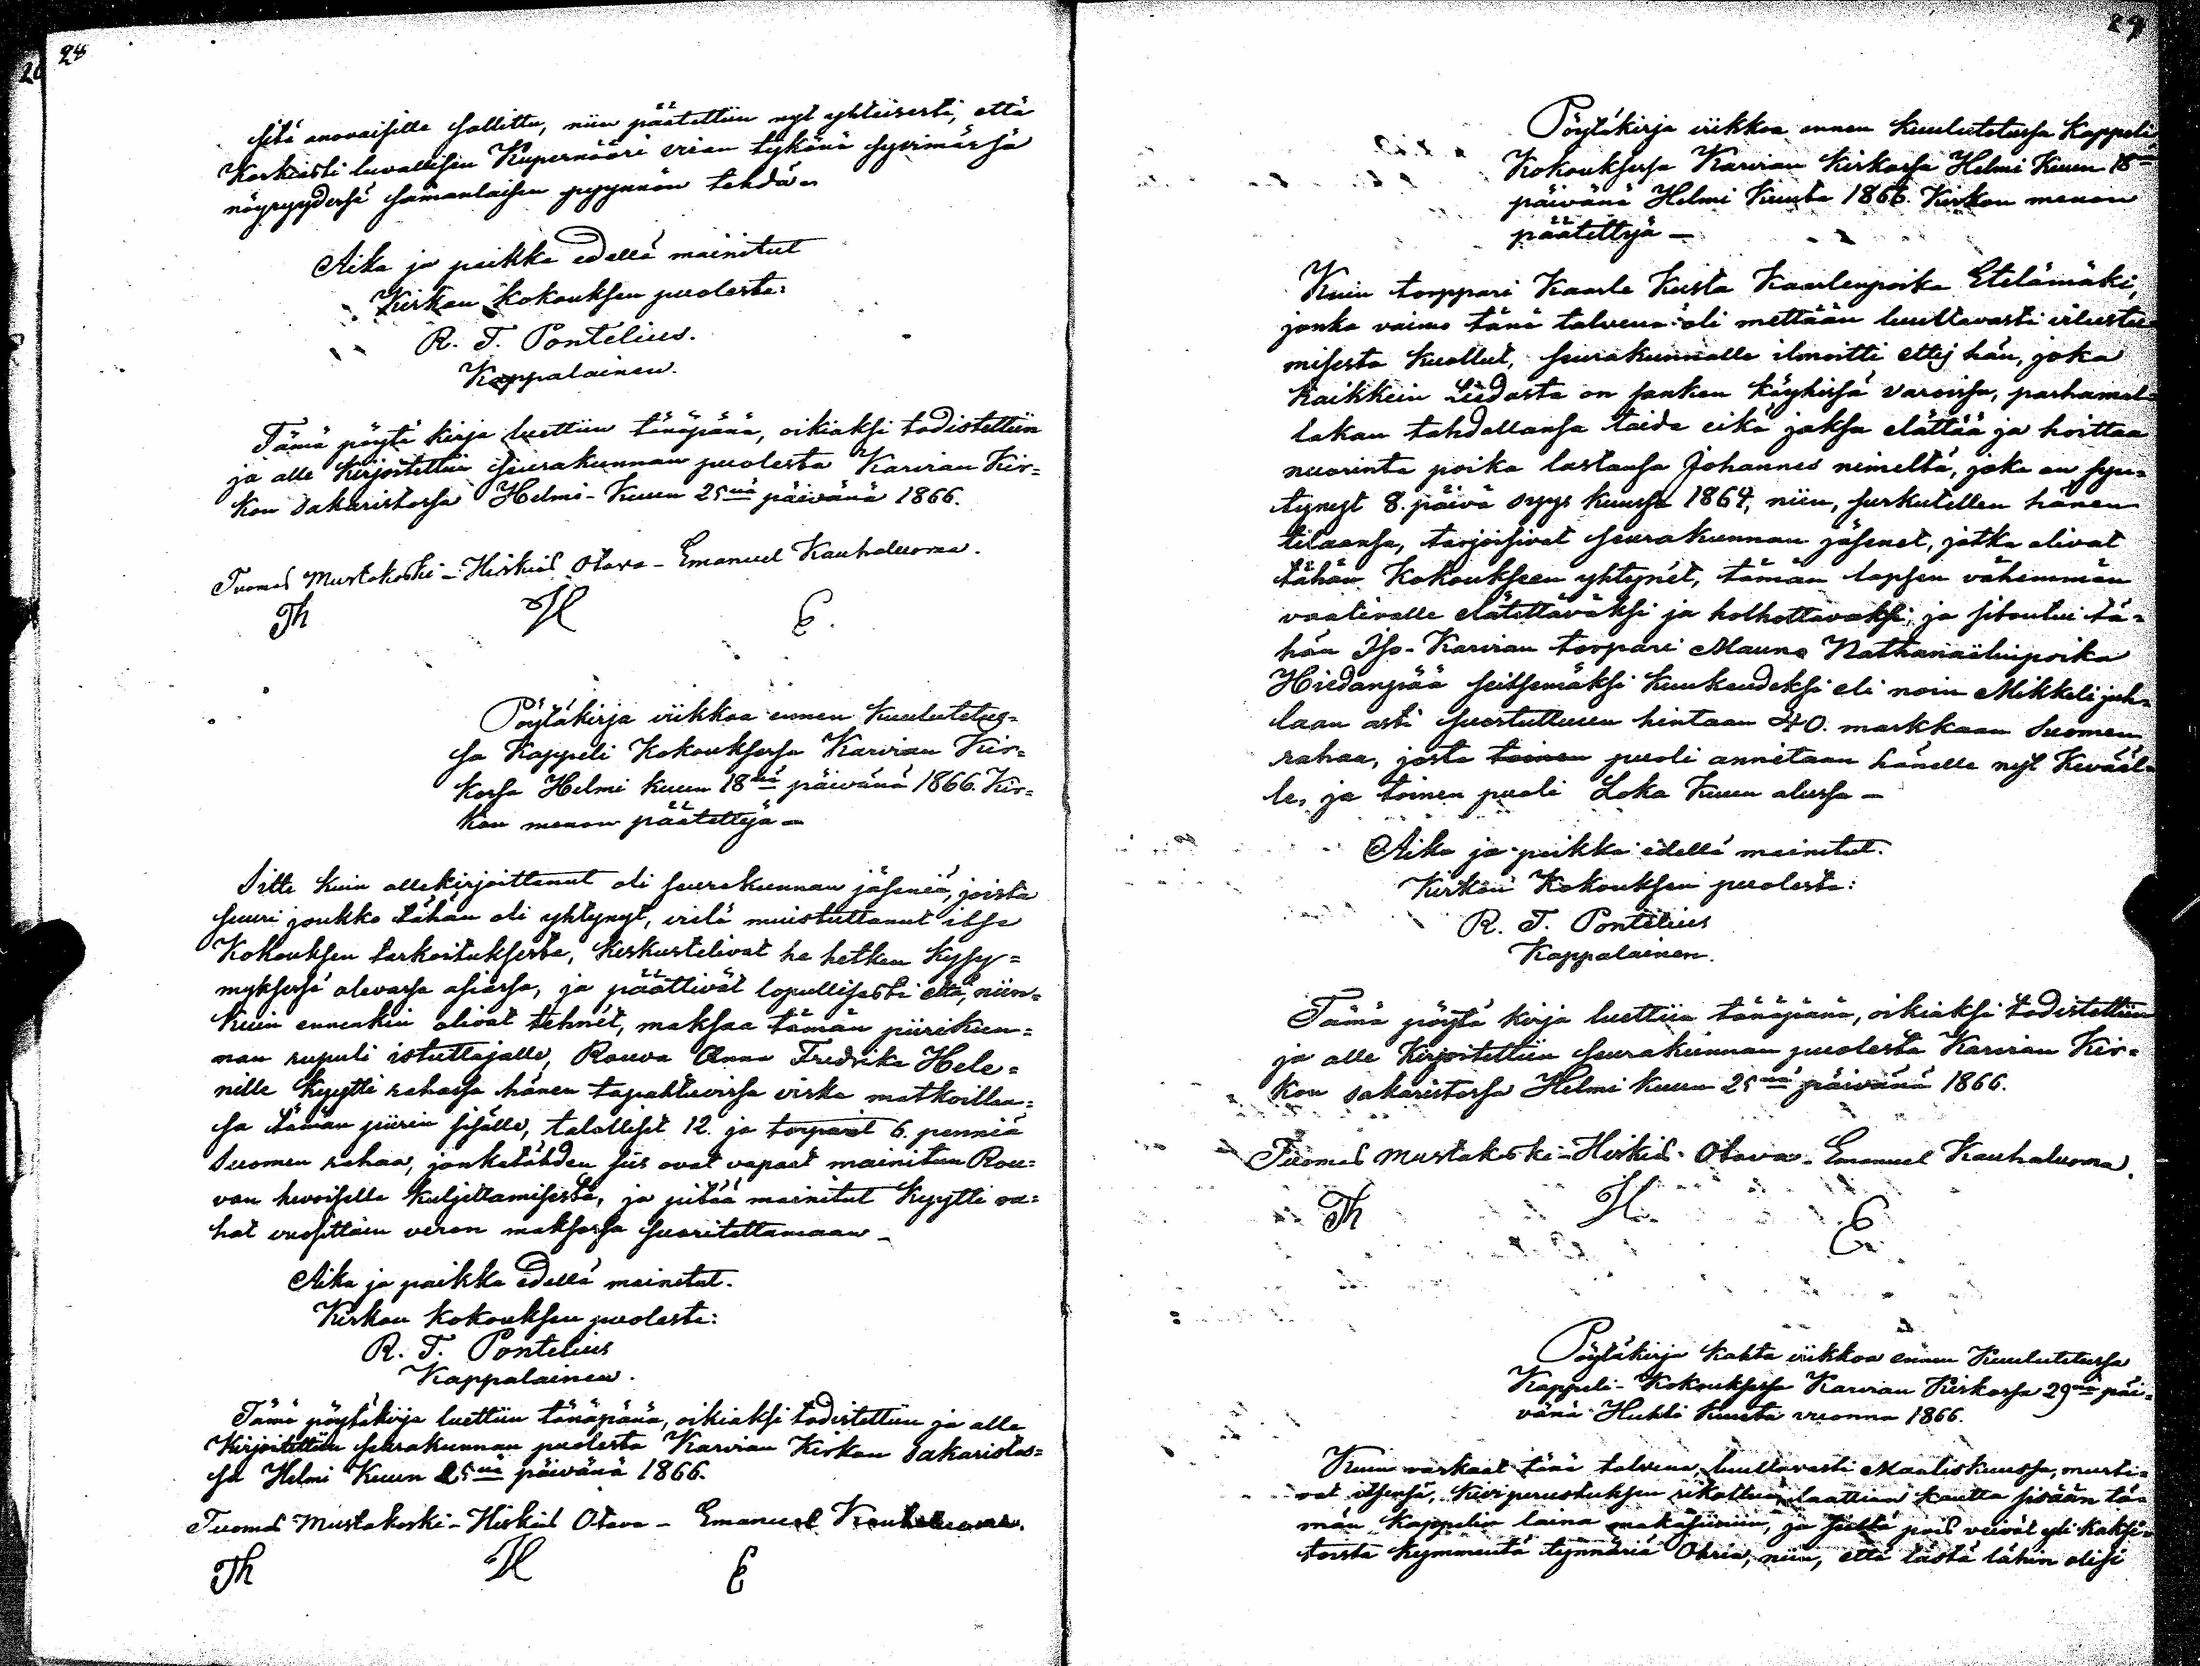 28
sitä anovaisille sallittu, niin päätettiin nyt yhteisesti, että
Korkiasti luvallisen Kupernööri viran tykönä syvimässä
nöyryydessä samanlaisen pyynnön tehdä –
Aika ja paikka edellä mainitut
Kirkon Kokouksen puolesta:
R. F. Pontelius.
Kappalainen.
Tämä pöytä kirja luettiin tänäpänä, oikiaksi todistettiin
ja alle kirjoitettiin seurakunnan puolesta Karvian Kir=
kon Sakaristossa Helmi-Kuun 25nä päivänä 1866.
Tuomas Mustakoski – Hiskias Otava – Emanuel Kauhaluoma.
Th H E.
Pöytäkirja viikkoa ennen kuulutetus=
sa Kappeli Kokouksessa Karvian Kir=
kossa Helmi kuun 18nä päivänä 1866. Kir=
kon menon päätettyä –
Sitte kuin allekirjoittanut oli seurakunnan jäseniä, joista
suuri joukko tähän oli yhtynyt, vielä muistuttanut itse
Kokouksen tarkoituksesta, keskustelivat he hetken kysy=
myksessä olevassa asiassa, ja päättivät lopullisesti että, niin=
kuin ennenkin olivat tehnét, maksaa tämän piirikun=
nan rupuli istuttajalle, Rouva Anna Fredrika Hele=
nille kyyti rahassa hänen tapahtuvissa virka matkoillan=
sa tämän piirin sisälle, talolliset 12. ja torparit 6. penniä
Suomen rahaa, jonkatähden siis ovat vapaat mainitun Rou=
van hevoisella kuljettamisesta, ja pitää mainitut kyyti ra=
hat vuosittain veron maksossa suoritettamaan –
Aika ja paikka edellä mainitut.
Kirkon kokouksen puolesta:
R. F. Pontelius
Kappalainen.
Tämä pöytäkirja luettiin tänäpänä, oikiaksi todistettiin ja alle
kirjoitettiin seurakunnan puolesta Karvian Kirkon Sakaristos=
sa Helmi Kuun 25nä päivänä 1866.
Tuomas Mustakoski – Hiskias Otava – Emanuel Kauhaluoma.
Th H E
29
Pöytäkirja viikkoa ennen kuulutetussa Kappeli
Kokouksessa Karvian Kirkossa Helmi Kuun 18nä
päivänä Helmi Kuuta 1866. Kirkon menon
päätettyä –
Kuin torppari Kaarle Kusta Kaarlenpoika Etelämäki,
jonka vaimo tänä talvena oli mettään luultavasti vilustu=
misesta kuollut, seurakunnalle ilmoitti ettej hän, joka
kaikkein tiedosta on sanken köyhissä varoissa, parhamal=
lakan tahdollansa taida eikä jaksa elättää ja hoittaa
nuorinta poika lastansa Johannes nimeltä, joka on syn=
tynyt 8. päivä Syys kuussa 1864, niin, surkutellen hänen
tilaansa, tarjoisivat seurakunnan jäsenet, jotka olivat
tähän Kokoukseen yhtynét, tämän lapsen vähemmän
vaativalle elätettäväksi ja holhottavaksi, ja sitoutui tä=
hän Iso-Karvian torpari Mauno Nathanaëlinpoika
Hiedanpää seitsemäksi kuukaudeksi eli noin Mikkeli juh=
laan asti suostuttuun hintaan 40. markkaan Suomen
rahaa, josta toinen puoli annetaan hänelle nyt Kevääl=
le, ja toinen puoli Loka Kuun alussa –
Aika ja paikka edellä mainitut.
Kirkon Kokouksen puolesta:
R. F. Pontelius
Kappalainen.
Tämä pöytä kirja luettiin tänäpänä, oikiaksi todistettiin
ja alle kirjoitettiin seurakunnan puolesta Karvian Kir=
kon sakaristossa Helmi kuun 25nä päivänä 1866.
Tuomas Mustakoski – Hiskias Otava – Emanuel Kauhaluoma.
Th H E
Pöytäkirja kahta viikkoa ennen Kuulutetussa
Kappeli-Kokouksessa Karvian Kirkossa 29nä päi=
vänä Huhti kuuta vuonna 1866.
Kuin varkaat tänä talvena, luultavasti Maaliskuussa, murti=
vat itsensä, kivi perustuksen rikottua, laattian kautta sisään tä=
män kappelin laina makasiiniin, ja sieltä pois veivät yli kaksi=
toista kymmentä tynnäriä Ohria, niin, että tästä lähin olisi